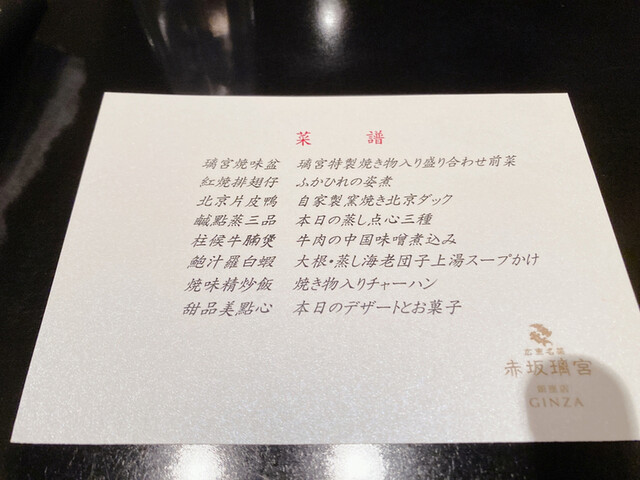 菜譜
璃宮焼味盆 璃宮特製焼き物入り盛り合わせ前菜
紅焼排翅仔 ふかひれの姿煮
北京片皮鴨 自家製窯焼き北京ダック
鹹點蒸三品 本日の蒸し点心三種
柱候牛腩煲 牛肉の中国味噌煮込み
鮑汁羅白蝦 大根・蒸し海老団子上湯スープかけ
焼味精炒飯 焼き物入りチャーハン
甜品美點心 本日のデザートとお菓子
広東名菜
赤坂璃宮
銀座店
GINZA